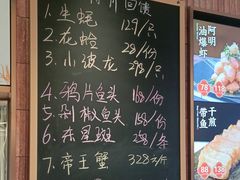 回馈
1.生蚝 129/只
2.花蛤 28/份
3.小波龙 298/只
4.鸦片鱼头 168/份
5.剁椒鱼头 158/份
6.东星斑 298/条
7.帝王蟹 328元/斤
阿明
油爆虾
78
118
干煎
带鱼
88
138